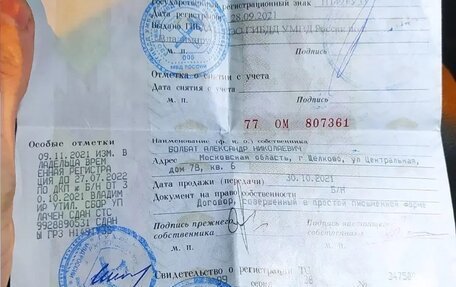 Государственный регистрационный знак
Дата регистрации 28.09.2021
Выдано ГИБДД
ГИБДД УМВД России по
М. П. Подпись
МВД РОССИИ
Отметка о снятии с учета
Дата снятия с учета
м. п. Подпись
77 ОМ 807361
Особые отметки
09.11.2021 ИЗМ. В
ЛАДЕЛЬЦА ВРЕМ
ЕННАЯ РЕГИСТРА
ЦИЯ ДО 27.07.2022
ГП ДКП # Б/Н ОТ 3
0.10.2021 ВЛАДИМ
ИР УТИЛ. СБОР УП
ЛАЧЕН СДАН СТС
9928890531 СДАН
Ы ГРЗ
Наименование (ф. и. о.) собственника
БОЛБАТ АЛЕКСАНДР НИКОЛАЕВИЧ
Адрес Московская область, г Щёлково, ул Центральная,
дом 7В, кв. 6
Дата продажи (передачи) 30.10.2021
Документ на право собственности Б/Н
Договор, совершенный в простой письменной форме
Подпись прежнего собственника
Подпись настоящего собственника
М. П. М. П.
Свидетельство о регистрации ТС
серия